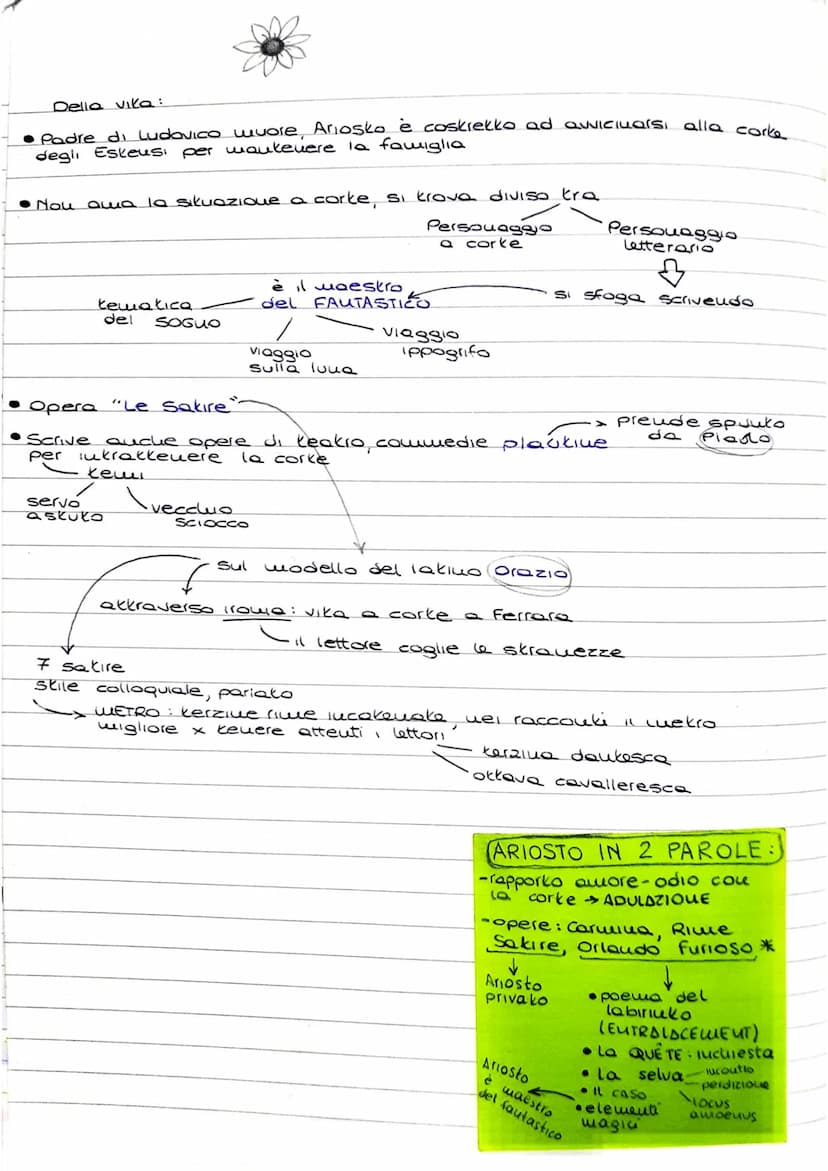 Della vita:
• Padre di Ludovico muore, Ariosto è costretto ad avvicinarsi alla corte
degli Estensi per mantenere la famiglia
• Non ama la situazione a corte, si trova diviso tra
Personaggio
a corte
Personaggio
letterario
si sfoga scrivendo
è il maestro
del FANTASTICO
tematica
del SOGNO
viaggio
sulla luna
viaggio
ippogrifo
• Opera "Le Satire"
• Scrive anche opere di teatro, commedie plautine
per intrattenere la corte
→ prende spunto
da Plauto
temi
servo
astuto
vecchio
sciocco
sul modello del latino Orazio
attraverso ironia: vita a corte a Ferrara
il lettore coglie le stranezze
7 satire
stile colloquiale, parlato
→ METRO: terzine rime incatenate, nei racconti il metro
migliore x tenere attenti i lettori
terzina dantesca
ottava cavalleresca
ARIOSTO IN 2 PAROLE:
- rapporto amore-odio con
la corte → ADULAZIONE
- opere: Carmina, Rime
Satire, Orlando Furioso *
Ariosto
privato
• poema del
labirinto
(ENTRALACEMENT)
• La QUÊTE: inchiesta
• La selva
incontro
perdizione
locus
amoenus
• Il caso
• elementi
magici
Ariosto
è maestro
del fantastico